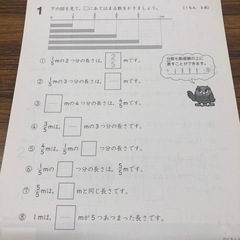 1 下の図を見て、□にあてはまる数をかきましょう。
① 1/5mの2つ分の長さは、□mです。
② 1/5mの3つ分の長さは、□mです。
③ □mの4つ分の長さは、4/5mです。
④ 3/5mは、□mの3つ分の長さです。
⑤ 4/5mは、1/5mの□つ分の長さです。
⑥ 1/5mの□つ分の長さは、5/5mです。
⑦ 5/5mは、□mと同じ長さです。
⑧ 1mは、□mが5つあつまった長さです。
分数も数直線の上に
表すことができます。